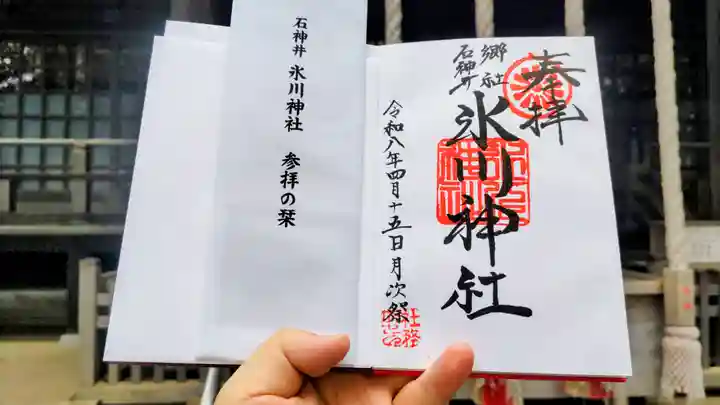 奉拝
郷社
石神井
氷川神社
令和八年四月十五日月次祭
社務
石神井 氷川神社 参拝の栞